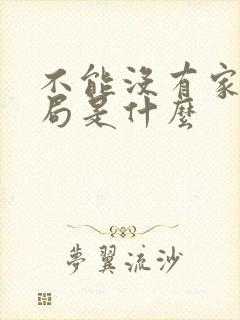 不能沒有家
局是什麼
夢翼流沙